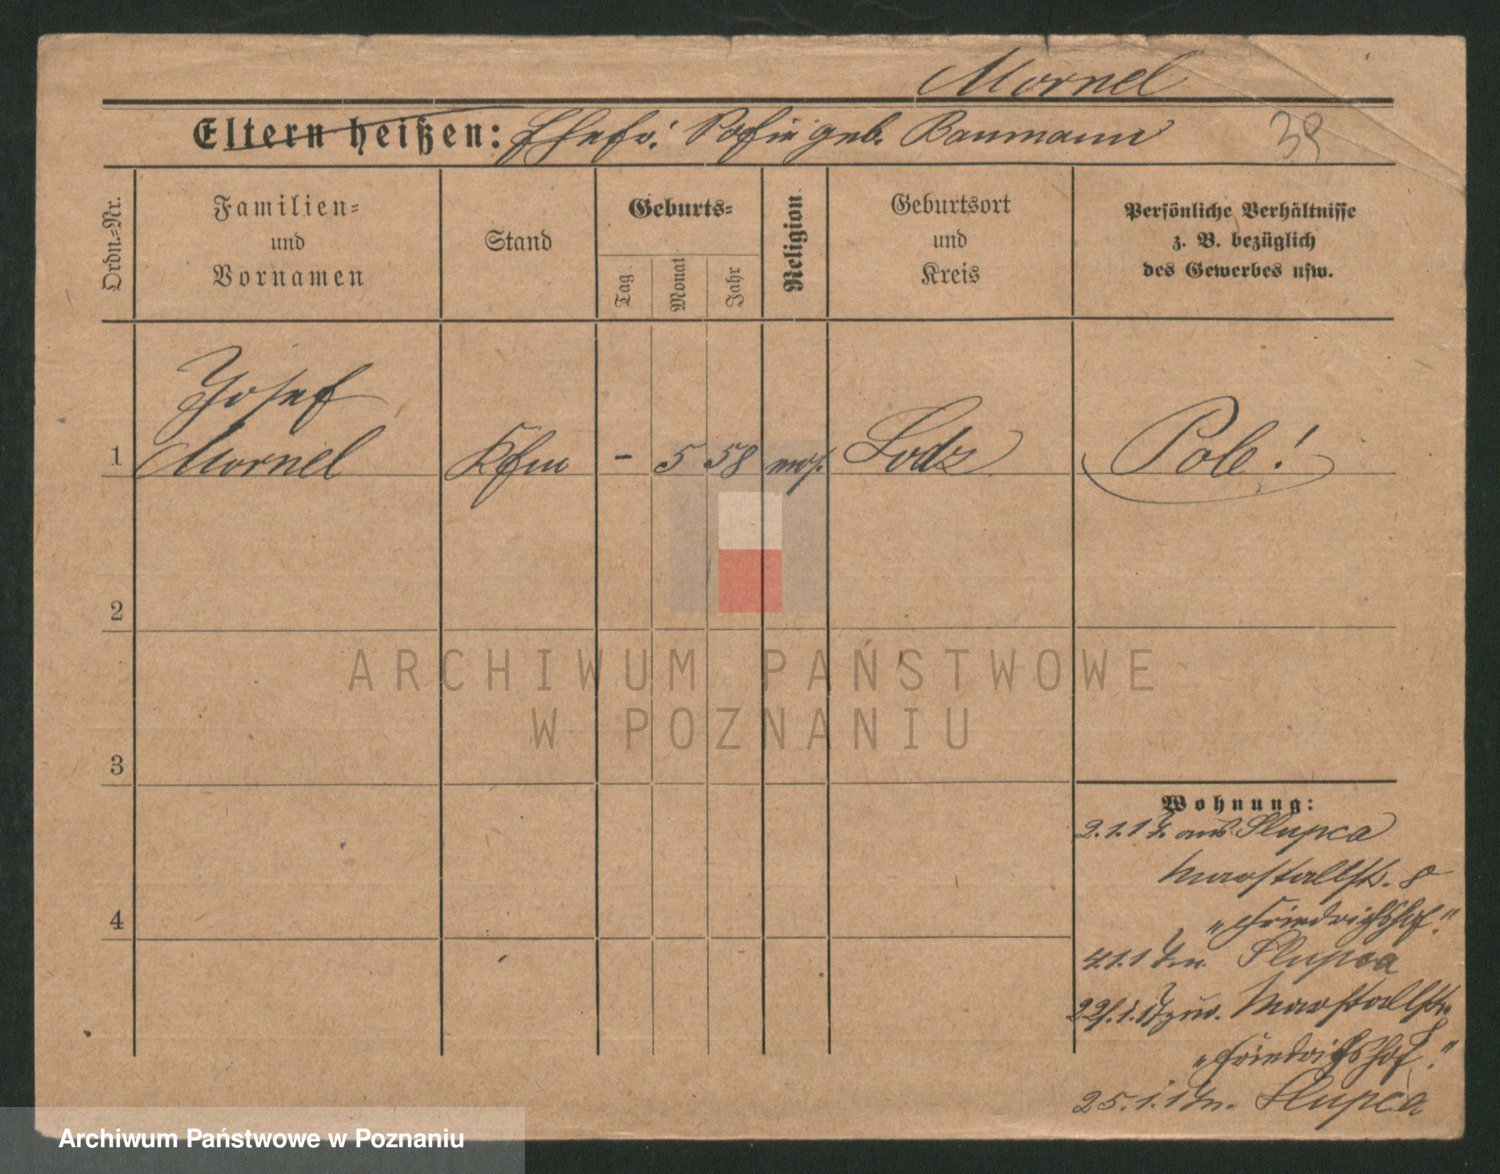 Mornel
Eltern heißen: Ehefr: Sofie geb. Baumann
38
Ordn.-Nr.
Familien-
und
Vornamen
Stand
Geburts-
Tag
Monat
Jahr
Religion
Geburtsort
und
Kreis
Persönliche Verhältnisse
z. B. bezüglich
des Gewerbes usw.
1
Josef
Mornel
Kfm
-
5
58
mos.
Lodz
Pole!
2
3
4
Wohnung:
2.1.17. aus Slupca
Marstallstr. 8
"Friedrichshof."
4.1.17 n. Slupca
22.1.17 zur. Marstallstr.
8
"Friedrichshof."
25.1.17 n. Slupca
ARCHIWUM PAŃSTWOWE
W POZNANIU
Archiwum Państwowe w Poznaniu